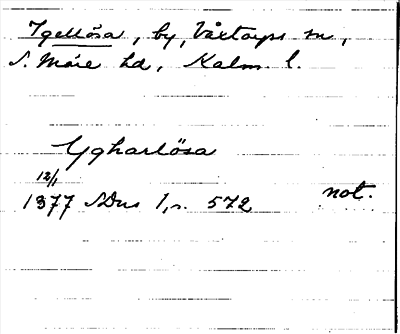 Igellösa, by, Växtorps sn,
S. Möre hd, Kalm. l.
Ygharlösa
12/1
1377 SDns 1, s. 572 not.